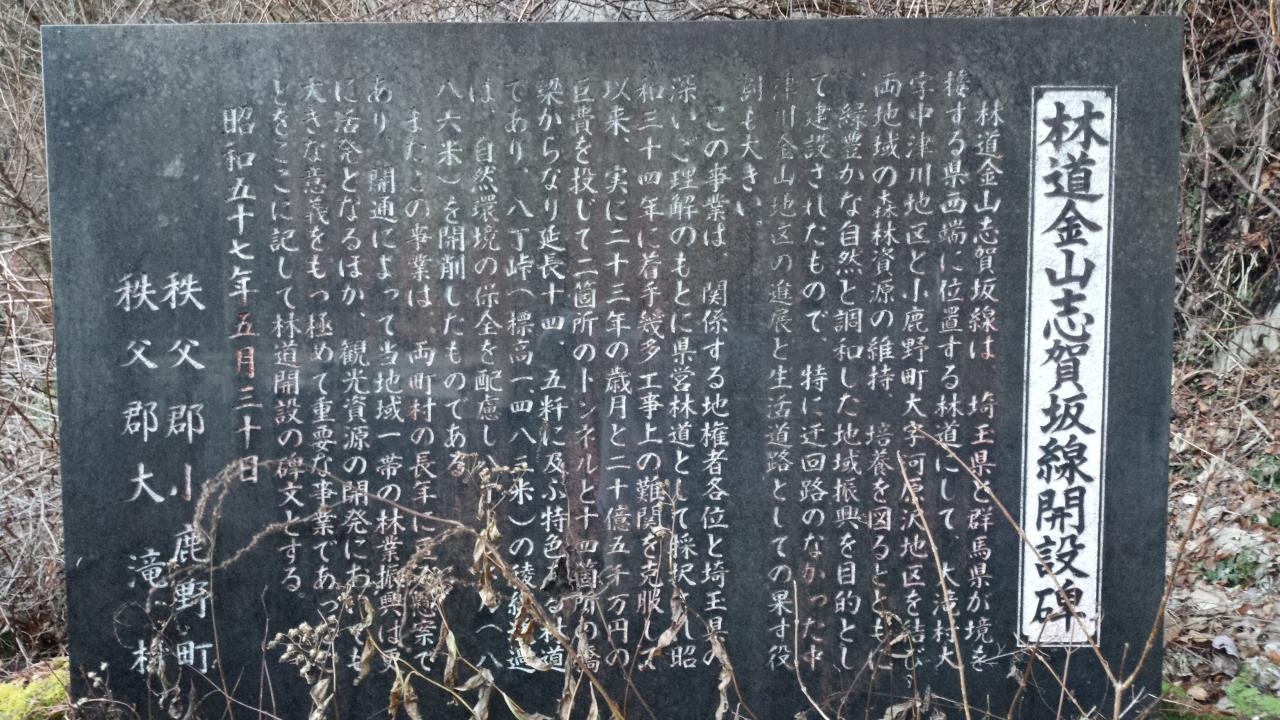 林道金山志賀坂線開設碑
林道金山志賀坂線は、埼玉県と群馬県が境を
接する県西端に位置する林道にして、大滝村大
字中津川地区と小鹿野町大字河原沢地区を結び
両地域の森林資源の維持、培養を図るとともに
、緑豊かな自然と調和した地域振興を目的とし
て建設されたもので、特に迂回路のなかった中
津川金山地区の進展と生活道路としての果す役
割も大きい。
この事業は、関係する地権者各位と埼玉県の
深いご理解のもとに県営林道として採択され昭
和三十四年に着手幾多工事上の難関を克服して
以来、実に二十三年の歳月と二十億五千万円の
巨費を投じて二箇所のトンネルと十四箇所の橋
梁からなり延長十四、五粁に及ぶ特色ある林道
であり、八丁峠(標高一四八三米)の稜線通過
は、自然環境の保全を配慮し(八
八六米)を開削したものである
またこの事業は、両町村の長年に懸案で
あり、開通によって当地域一帯の林業振興は更
に活発となるほか、観光資源の開発においても
大きな意義をもつ極めて重要な事業であっ
とをここに記して林道開設の碑文とする。
昭和五十七年五月三十日
秩父郡小鹿野町
秩父郡大滝村